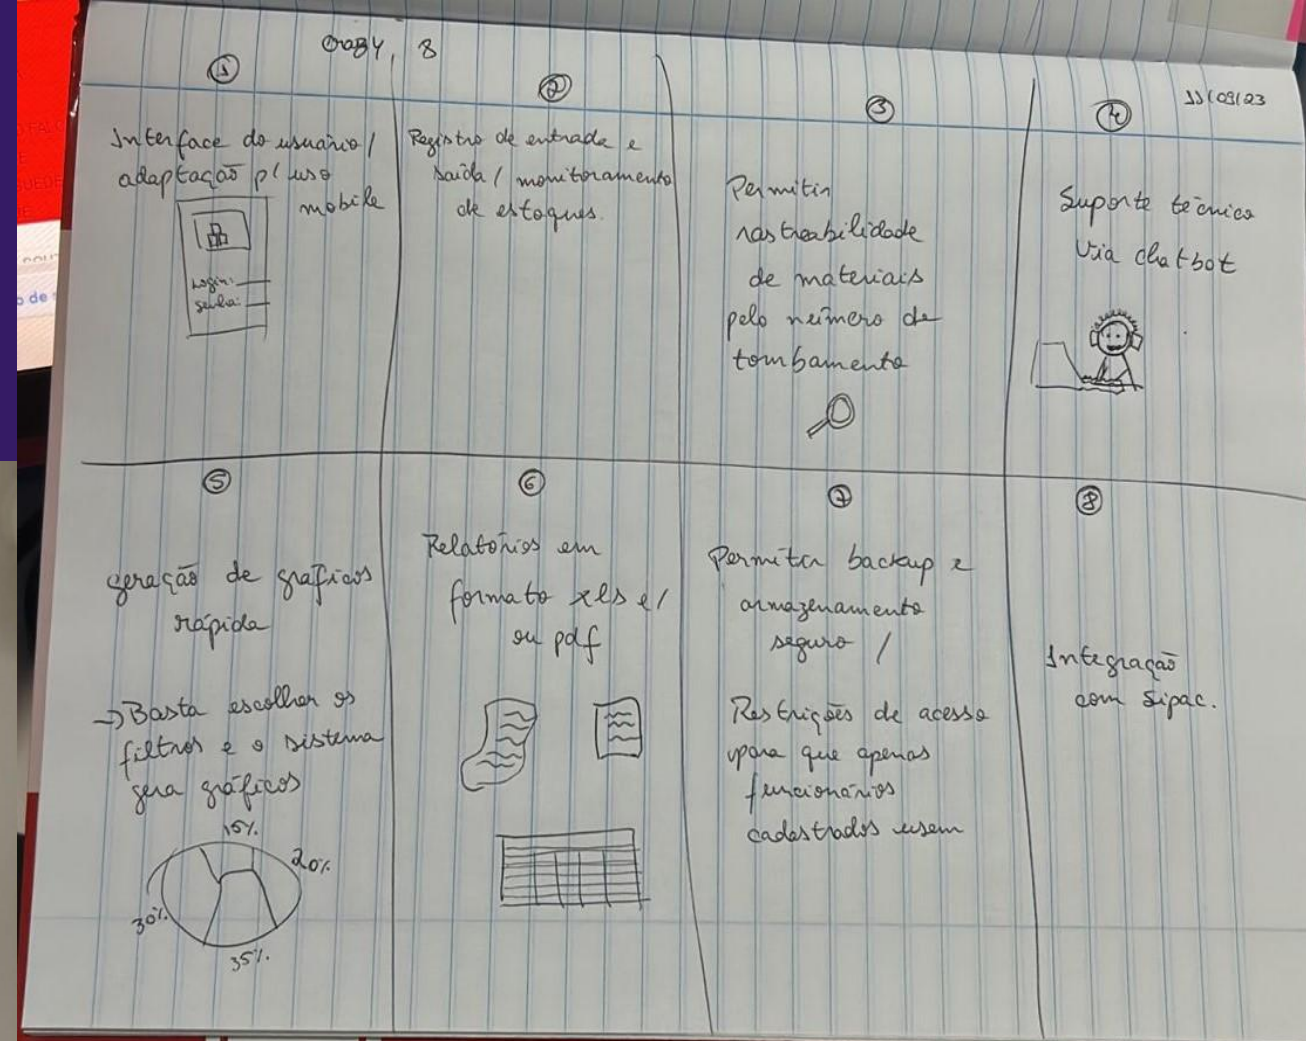 Crazy 8
11/09/23
1
Interface do usuário /
adaptação p/ uso
mobile
Login:
senha:
2
Registro de entrada e
saída / monitoramento
de estoques.
3
Permitir
rastreabilidade
de materiais
pelo número de
tombamento
4
Suporte técnico
via chatbot
5
geração de gráficos
rápida
→ Basta escolher os
filtros e o sistema
gera gráficos
15%
20%
30%
35%
6
Relatórios em
formato xls e/
ou pdf
7
Permitir backup e
armazenamento
seguro /
Restrições de acesso
para que apenas
funcionários
cadastrados usem
8
Integração
com Sipac.